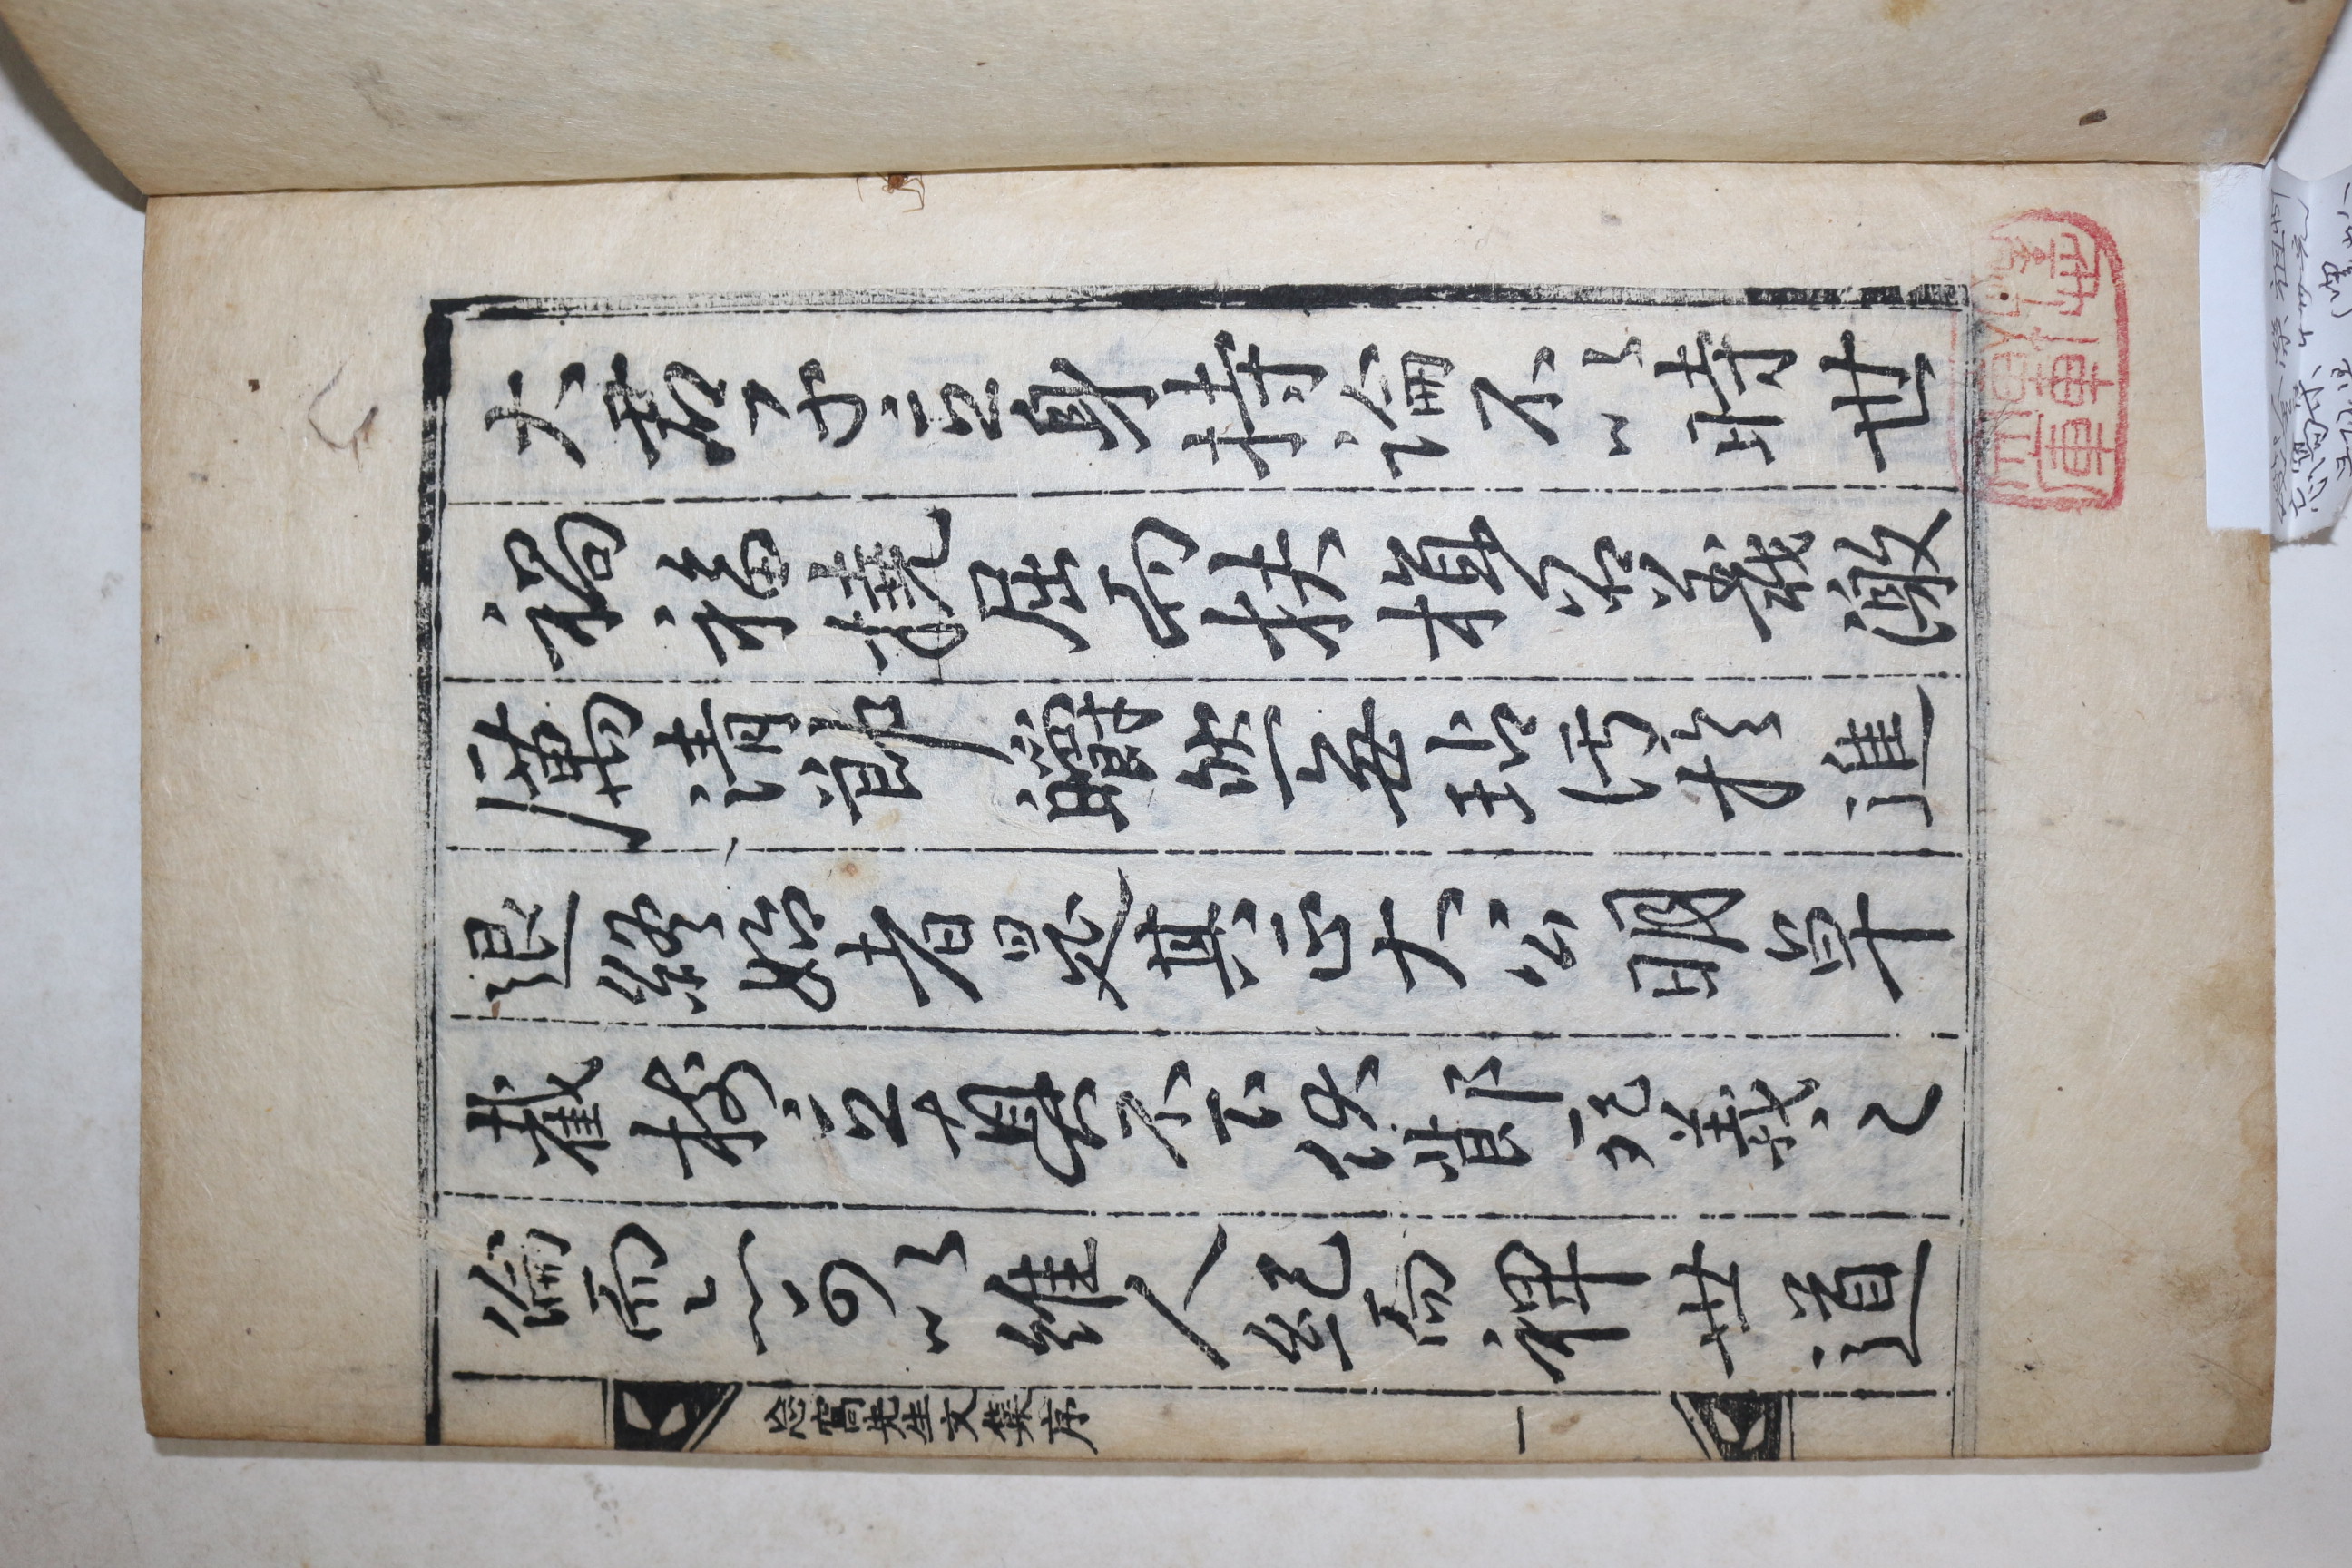 大君子立身持論不以時世
禍福撓屈而扶植名義激
厲清節皭然無玷汚於進
退終始者是其正大公明卓
截樹立真不下伏節死義之
倫而亦可以維人紀而裨世道
忘窩先生文集序
一
軒
庫
忘窩集